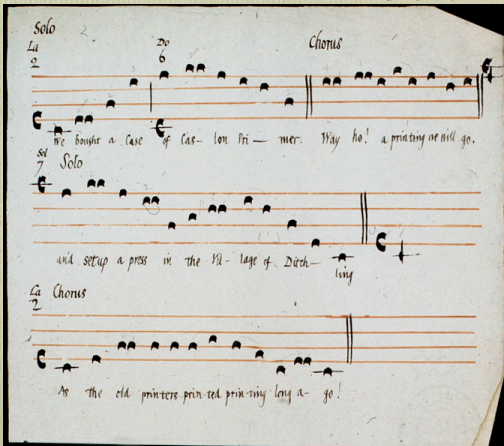 Solo
La Do Chorus
2 6
We bought a Case of Cas- lon Pri — mer. Way ho! a printing we will go.
Sol
7 Solo
and set up a press in the Vil- lage of Ditch- ling
La Chorus
2
As the old printers prin-ted prin-ting long a- go!